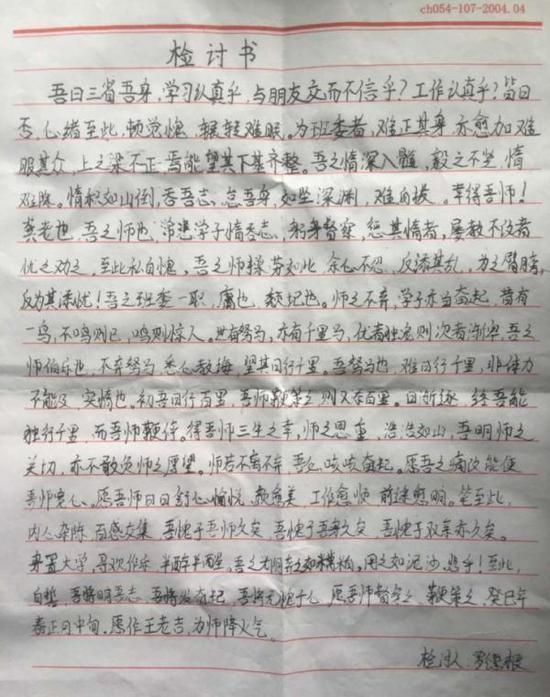 ch054-107-2004.04
检讨书
吾日三省吾身，学习认真乎，与朋友交而不信乎？工作认真乎？皆曰
否，心绪至此，顿觉愧，辗轻难眠。为班委者，难正其身，亦愈加难
服其众，上之梁不正，焉能望其下基齐整。吾之惰深入髓，毅之不坚，惰
难除。惰积如山倒，吞吾志，怠吾身，如坐深渊，难自拔。幸得吾师！
龚老也，吾之师也，常悲学子惰吞志，躬身督察，惩其惰者，屡教不改者
忧之劝之，至此私自愧。吾之师操劳如此，余心不忍，反添其乱，力之臂膀，
反为其添忧！吾之班委一职，庸也，败记也。师之不弃，学子亦当奋起，昔有
一鸟，不鸣则已，鸣则惊人。世有驽马，亦有千里马，优者独宠则次者渐卑，吾之
师伯乐也，不弃驽马，悉心教诲，望其日行千里。吾驽马也，难日行千里，非体力
不能及，实惰也。初吾日行百里，吾师鞭策之则又存百里。日渐逐，终吾能
独行千里，而吾师鞭侍。得吾师三生之幸，师之恩重，浩浩如山，吾明师之
关切，亦不敢负师之愿望。师若不离不弃，吾心啖啖奋起。愿吾之痛改能使
吾师宽心。愿吾师日日舒心愉悦，教育美，工作愈顺，前途愈明。笔至此，
内心杂陈，百感交集，吾愧于吾师久矣，吾愧于吾身久矣，吾愧于双亲亦久矣。
身置大学，寻欢作乐，半醉半醒，吾之光阴弃之如糠糟，用之如泥沙，悲乎！至此，
自誓，吾将明吾志，吾将发奋起，吾将无愧于心，愿吾师督察之，鞭策之，癸巳年
春正月中旬，愿作王老吉，为师降火气。
检讨人：罗